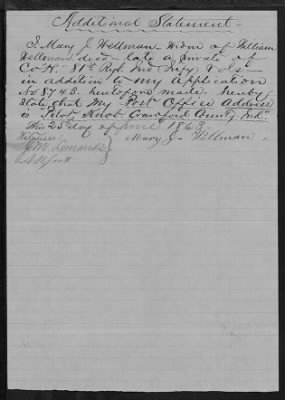 Additional Statement -
I. Mary J Wellman - Widow of William
Wellman decd - late a private of
Co "K" 31st Regt Ind Infy. Vols -
in addition to my Application
No 8743. heretofore made, hereby
State, that My "Post" Office Address
is "Pilot Knob. Crawford County Ind"
This 23d day of June 1863
Witnesses
Mary J - Wellman
J M. Lemonds